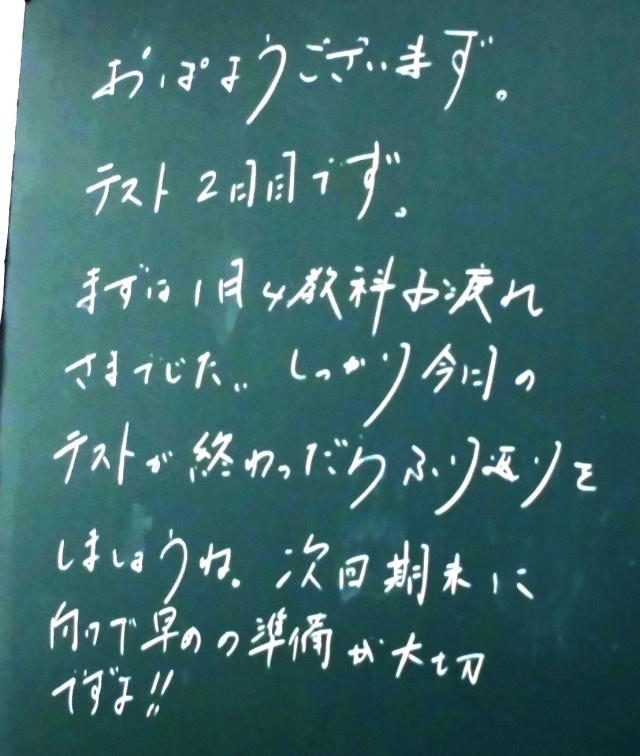 おぱようございまず。
テスト2日目でず。
まずは1日4教科お疲れ
さまでじた。しっかり今日の
テストが終わっだらふり返りを
しましょうね。次回期末に
向けで早めの準備が大切
でずよ!!